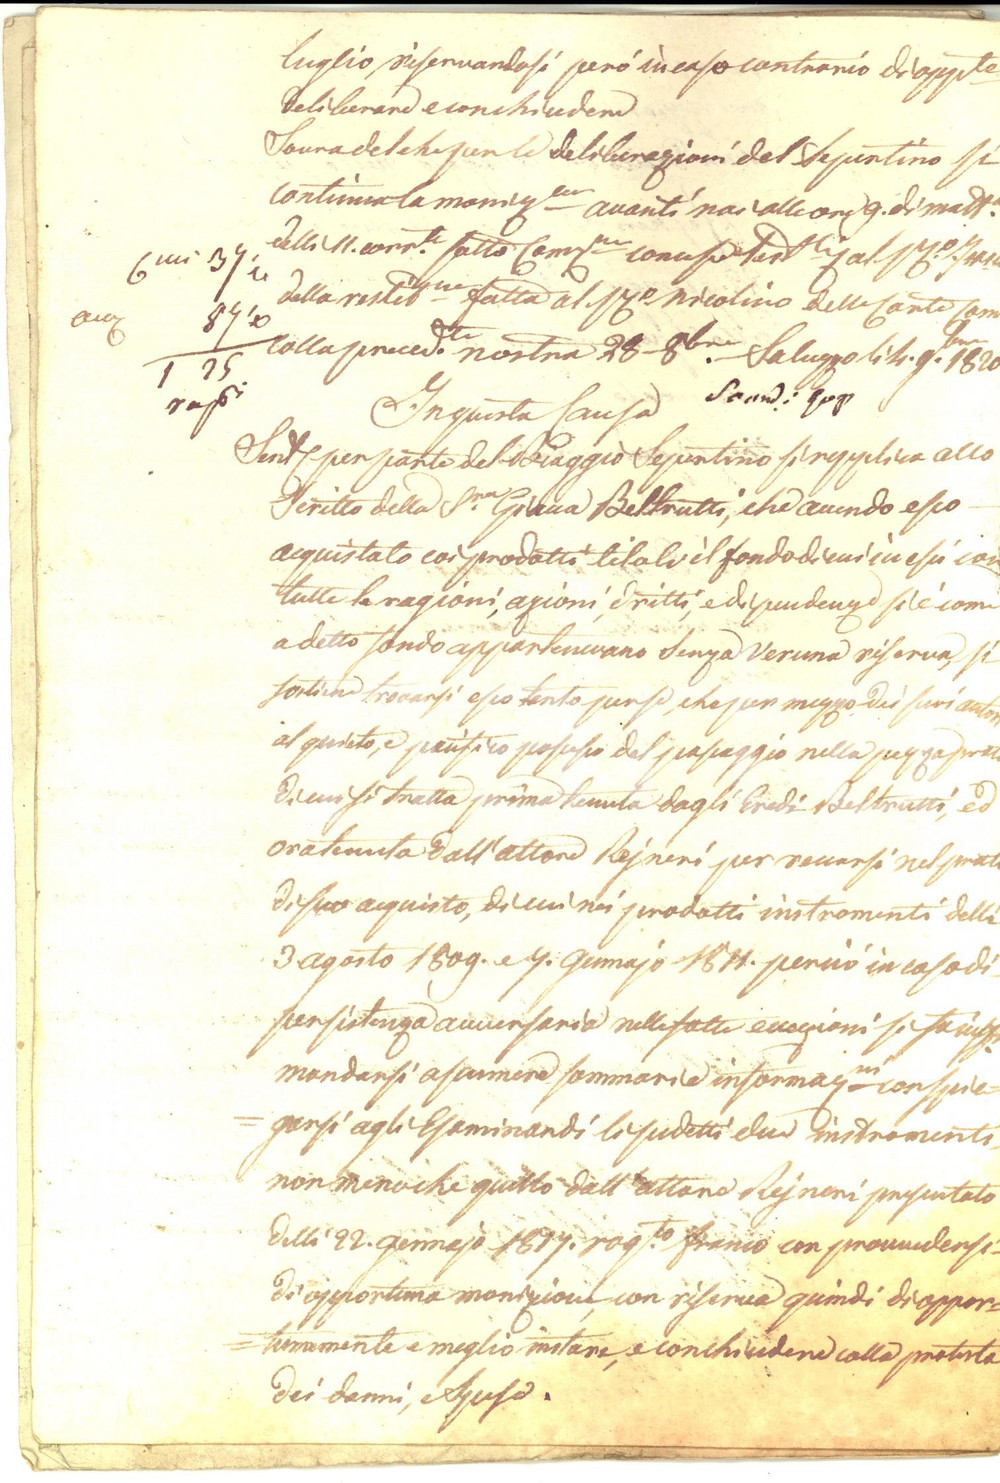 luglio riservandosi però in caso contrario di opp.te
deliberare e conchiudere
Sovra del che per le deliberazioni del Sepertino si
continua la moniz.ne avanti noi alle ore 9. di matt.a
delli 11. corr.te fatto Com.ne
Emi 37 1/2
della restit.ne fatta al Nicolino delle Carte Com
acq 87 1/2
colla preced.te nostra 28 8bre. Saluzzo li 4. 9.bre 1820
1 25
In questa Causa
Sent. per parte del Biaggio Sepertino si repplica allo
scritto della S.ra Beltrutti, che avendo esso
acquistato coi prodotti titoli il fondo di cui in essi con
tutte le ragioni, azioni, dritti, e dipendenze si è come
a detto fondo appartenevano senza veruna riserva, si
sostiene trovarsi esso tanto per se, che per mezzo dei suoi autori
al quieto, e pacifico possesso del passaggio nella pezza prato
di cui si tratta prima tenuta dagli Eredi Beltrutti, ed
ora tenuta dall'attore Rejneri per recarsi nel prato
di suo acquisto, di cui nei prodotti instromenti delli
3 agosto 1809. e 7. Gennajo 1811. perciò in caso di
persistenza avversaria nelle fatte eccezioni si fa inst.
mandarsi assumere sommarie informaz.ni con spie=
=garsi agli Esaminandi li sudetti due instromenti
non meno che quello dall'attore Rejneri presentato
delli 22. gennajo 1817. rog.to Franco con provvedersi
di opportuna monizione, con riserva quindi di oppor=
=tunamente e meglio instare, e conchiudere colla protesta
dei danni, e spese.